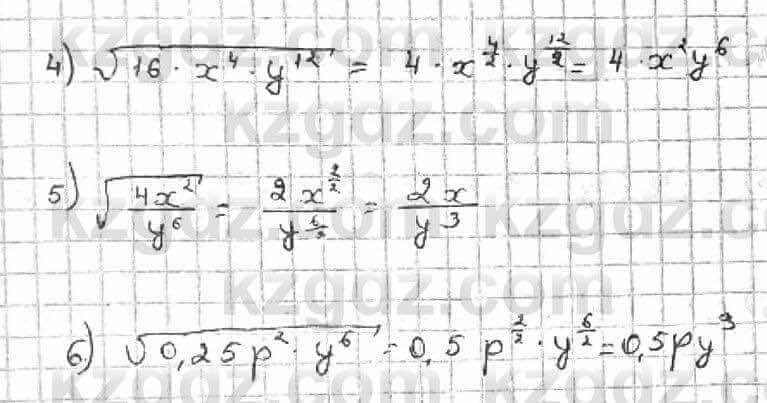 kzgdz.com
4) √16 · x⁴ · y¹² = 4 · x^(4/2) · y^(12/2) = 4 · x² y⁶
kzgdz.com
5) √(4x²/y⁶) = 2x^(2/2)/y^(6/2) = 2x/y³
kzgdz.com
6) √0,25p² · y⁶ = 0,5 p^(2/2) · y^(6/2) = 0,5py³